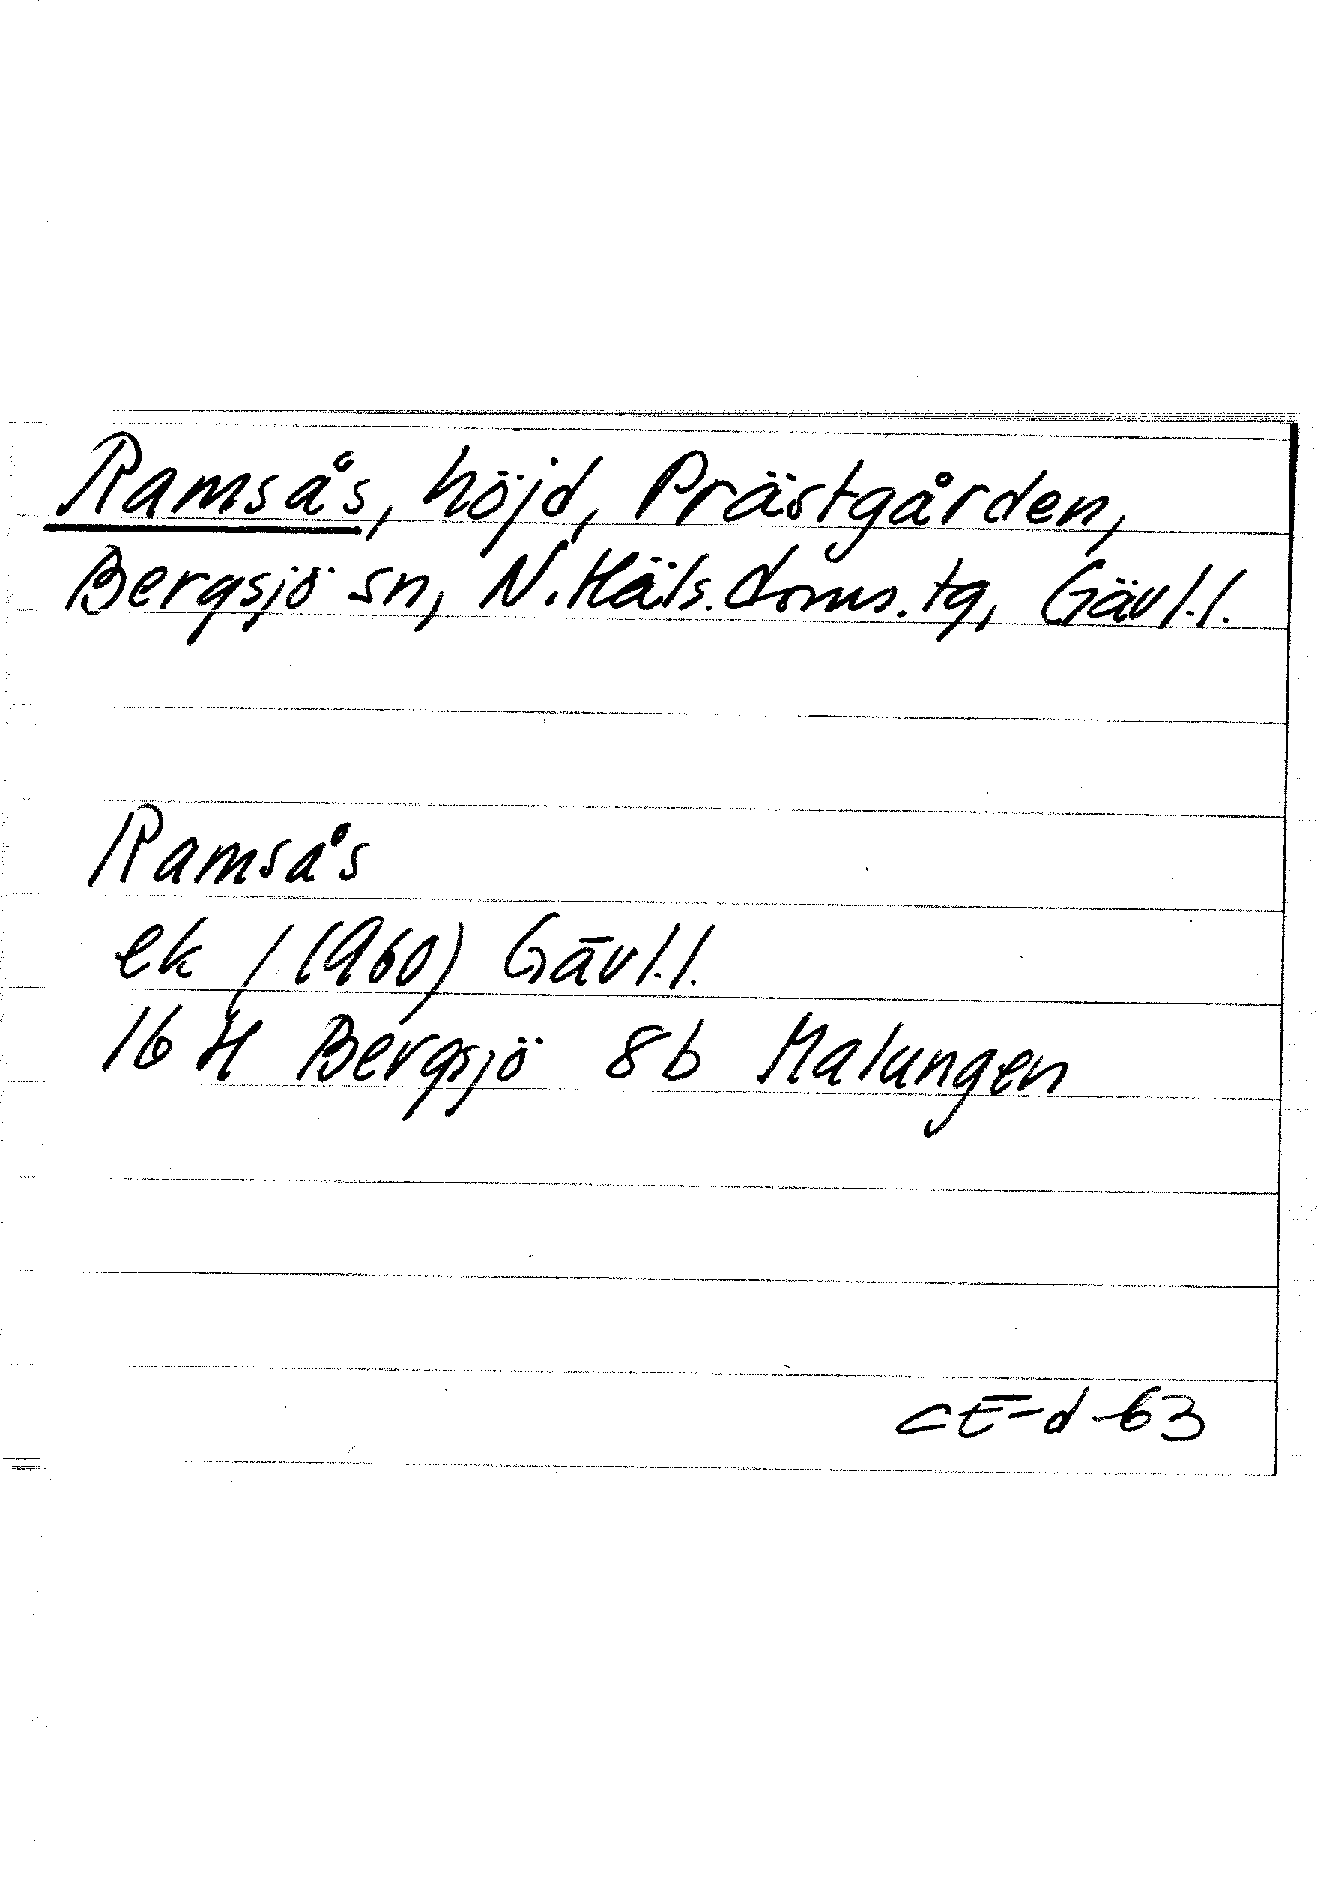 Ramsås, höjd, Prästgården,
Bergsjö sn, N. Häls. doms. tg, Gävl.l.
Ramsås
ek / (1960) Gävl.l.
16 H Bergsjö 8b Malungen
CE-d-63